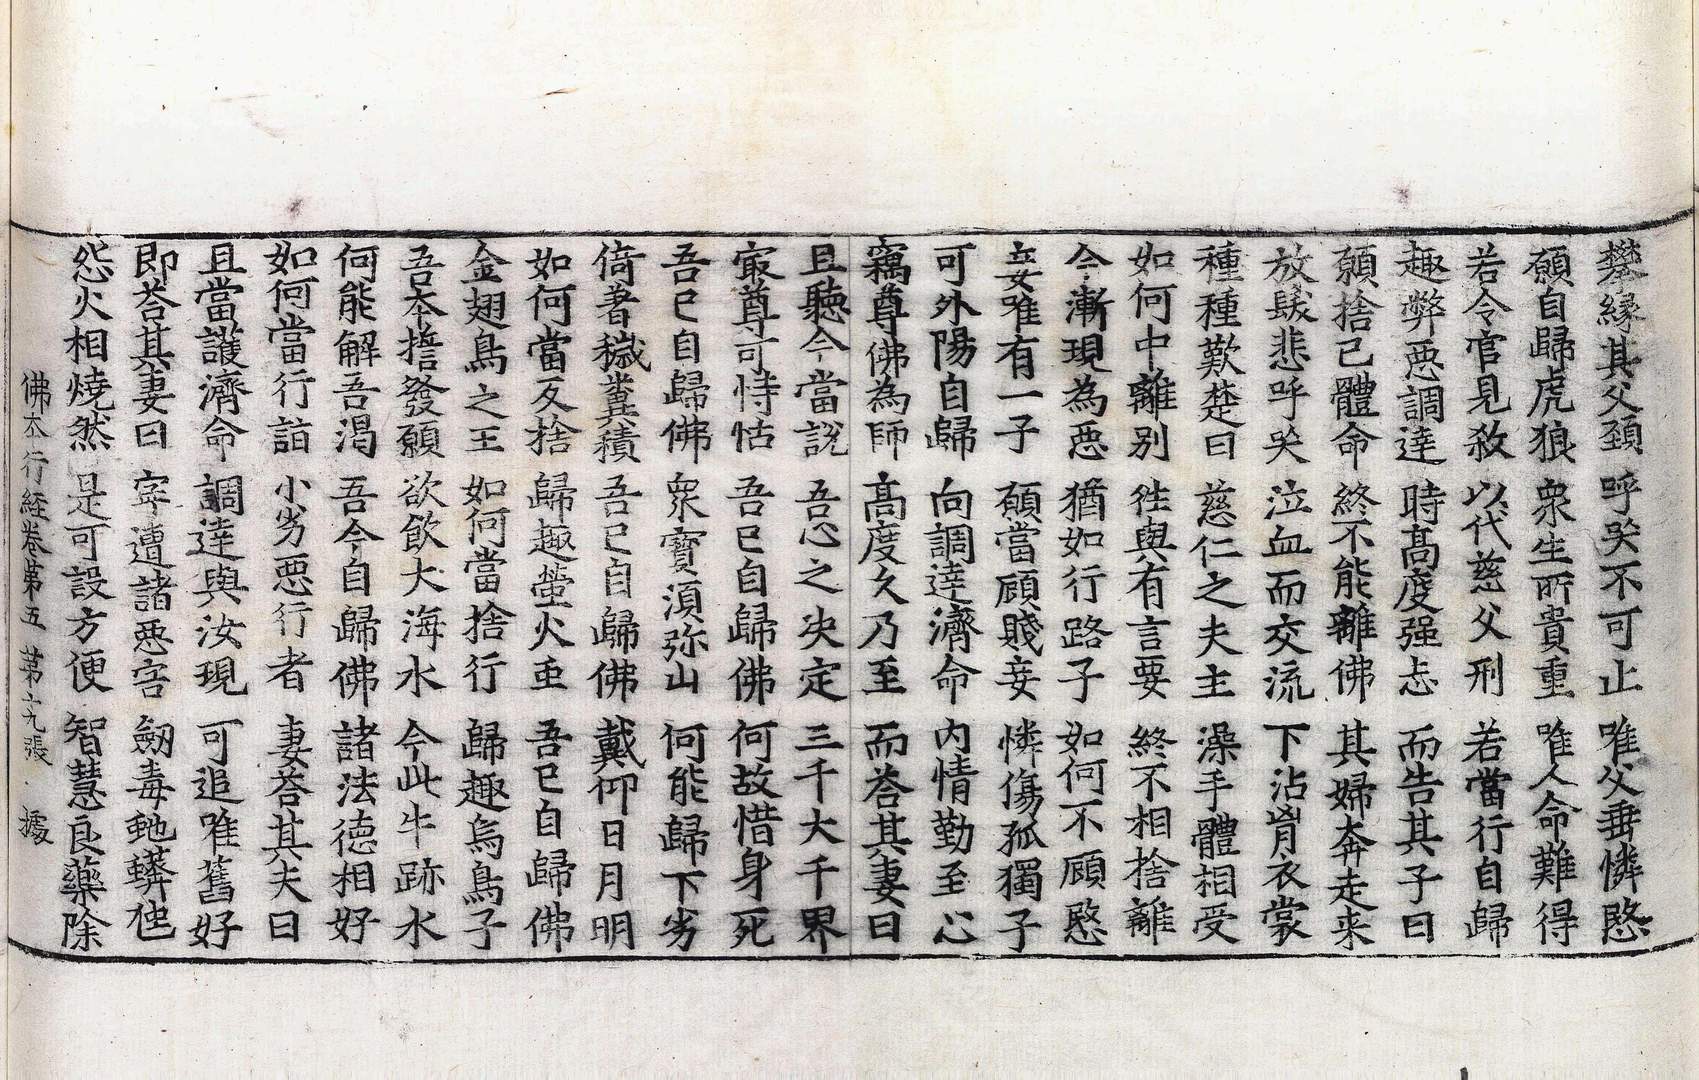 攀縁其父頚 呼哭不可止 唯父垂憐愍
願自歸虎狼 衆生所貴重 唯人命難得
若令官見殺 以代慈父刑 若當行自歸
趣弊惡調達 時髙度强志 而告其子曰
願捨己體命 終不能離佛 其婦奔走来
放髮悲呼哭 泣血而交流 下沾胷衣裳
種種歎楚曰 慈仁之夫主 澡手體相受
如何中離别 徃與有言要 終不相捨離
今漸現為惡 猶如行路子 如何不顧愍
妾唯有一子 願當顧賤妾 憐傷孤獨子
可外陽自歸 向調逹濟命 内情勤至心
竊尊佛為師 髙度久乃至 而荅其妻曰
且聽今當說 吾心之决定 三千大千界
㝡尊可恃怙 吾已自歸佛 何故惜身死
吾已自歸佛 衆寶湏弥山 何能歸下劣
倚著穢糞積 吾已自歸佛 戴仰日月明
如何當反捨 歸趣螢火虫 吾已自歸佛
金翅鳥之王 如何當捨行 歸趣烏鳥子
吾本誓發願 欲飲大海水 今此牛跡水
何能解吾渴 吾今自歸佛 諸法德相好
如何當行詣 小劣惡行者 妻荅其夫曰
且當護濟命 調逹與汝現 可追唯舊好
即荅其妻曰 寜遭諸惡害 劒毒虵蟒虺
怨火相燒然 是可設方便 智慧良藥除
佛本行經卷第五 第十九張 據